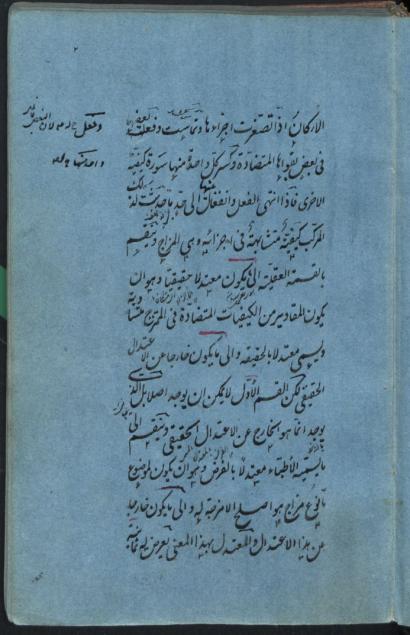 الاركان اذا تصغرت اجزاءها وتماست وفعلت بعضها
في بعض بقواها المتضادة وكسر كل واحدة منها سورة كيفية
الاخرى فاذا انتهى الفعل والانفعال الى حد ما حدثت لذلك
المركب كيفية متشابهة في اجزائه وهي المزاج وينقسم
بالقسمة العقلية الى ما يكون معتدلا حقيقيا وهو ان
يكون المقادير من الكيفيات المتضادة في الممتزج متساوية
ويسمى معتدلا بالحقيقة والى ما يكون خارجا عن الاعتدال
الحقيقي لكن القسم الاول لا يمكن ان يوجد اصلا بل الذي
يوجد انما هو الخارج عن الاعتدال الحقيقي وينقسم الى
ما يسميه الأطباء معتدلا بالفرض وهو ان يكون لموضوع
ما نوع مزاج هو اصلح الامزجة له والى ما يكون خارجا
عن هذا الاعتدال والمعتدل بهذا المعنى يعرض له ثمانية